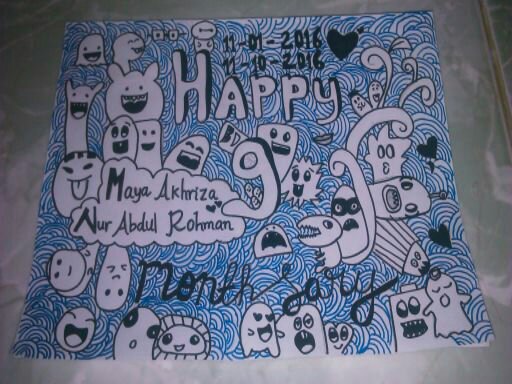 11-01-2016
11-10-2016
HAPPY
9
Maya Akhriza
Nur Abdul Rohman
monthsary